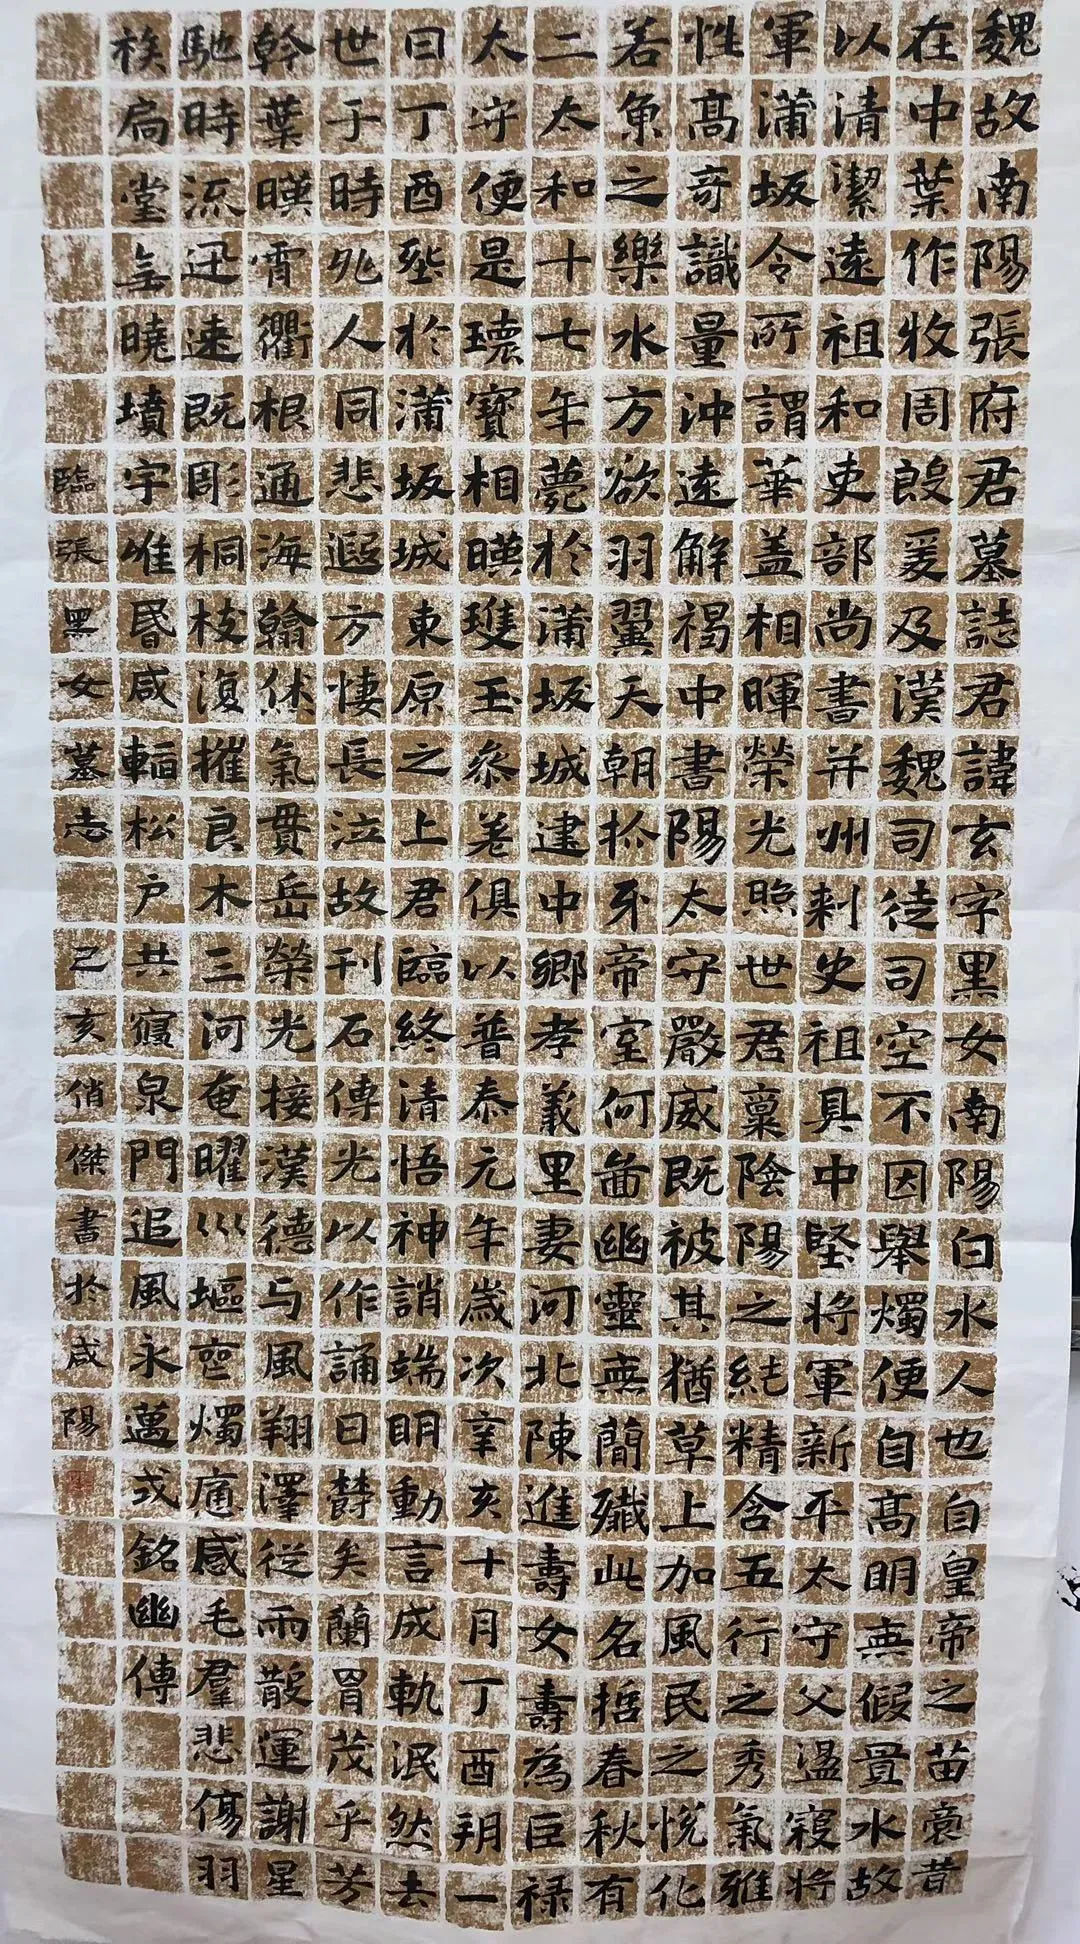 魏故南陽張府君墓誌君諱玄字黑女南陽白水人也自皇帝之苗裔昔
在中葉作牧周殷爰及漢魏司徒司空不因舉燭便自高明無假置水故
以清潔遠祖和吏部尚書并州刺史祖具中堅將軍新平太守父盪寇將
軍蒲坂令所謂華蓋相暉榮光照世君稟陰陽之純精含五行之秀氣雅
性高奇識量沖遠解褐中書陽太守嚴威既被其猶草上加風民之悅化
若魚之樂水方欲羽翼天朝抓牙帝室何圖幽靈無簡殲此名哲春秋有
二太和十七年薨於蒲坂城建中鄉孝義里妻河北陳進壽女壽為巨祿
太守便是瓌寶相暎瓊玉參差俱以普泰元年歲次辛亥十月丁酉朔一
日丁酉塟於蒲坂城東原之上君臨終清悟神誚端明動言成軌泯然去
世于時兆人同悲遐方悽長泣故刊石傳光以作誦曰欝矣蘭胄茂乎芳
幹葉暎霄衢根通海翰倐氣貫岳榮光接漢德与風翔澤從雨散運謝星
馳時流迅速既彫桐枝復摧良木三河奄曜川塸喪燭痛感毛群悲傷羽
族扃堂無曉墳宇唯昏咸輼松户共寢泉門追風永邁式銘幽傳
臨張黑女墓志 己亥俏傑書於咸陽